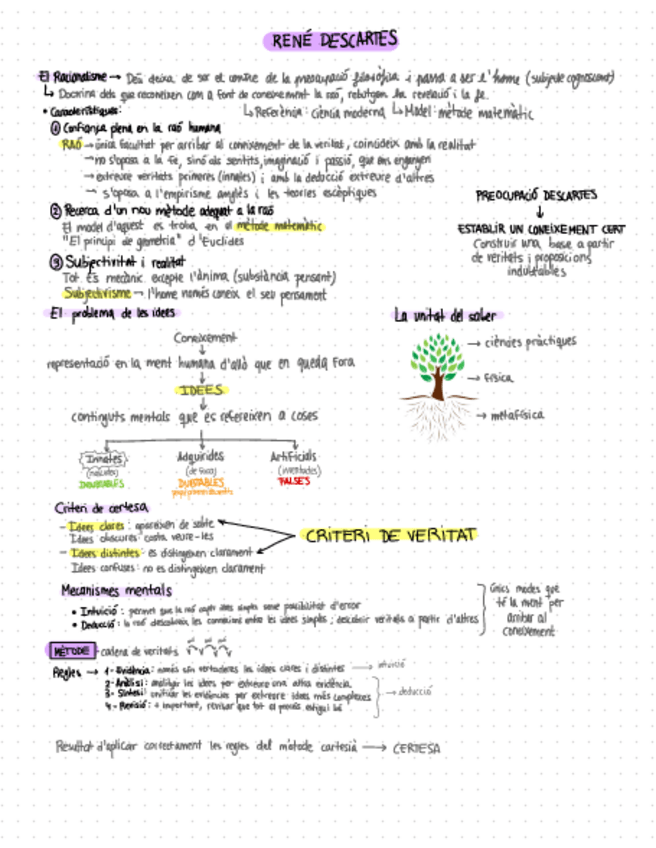 RENÉ DESCARTES
El Racionalisme → Déu deixa de ser el centre de la preocupació filosòfica i passa a ser l'home (subjecte cognoscent)
↳ Doctrina dels que reconeixen com a font de coneixement la raó, rebutgen la revelació i la fe.
• Característiques: ↳ Referència: ciència moderna ↳ Model: mètode matemàtic
① Confiança plena en la raó humana
RAÓ → única facultat per arribar al coneixement de la veritat, coincideix amb la realitat
→ no s'oposa a la fe, sinó als sentits, imaginació i passió, que ens enganyen
→ extreure veritats primeres (innates) i amb la deducció extreure d'altres
→ s'oposa a l'empirisme anglès i les teories escèptiques
PREOCUPACIÓ DESCARTES
↓
ESTABLIR UN CONEIXEMENT CERT
Construir una base a partir
de veritats i proposicions
indubtables
② Recerca d'un nou mètode adequat a la raó
El model d'aquest es troba en el mètode matemàtic
"El principi de geometria" d'Euclides
③ Subjectivitat i realitat
Tot és mecànic excepte l'ànima (substància pensant)
Subjectivisme → l'home només coneix el seu pensament
El problema de les idees
Coneixement
↓
representació en la ment humana d'allò que en queda fora
↓
IDEES
↓
continguts mentals que es refereixen a coses
Innates Adquirides Artificials
(nascudes) (de fora) (inventades)
DUBTABLES FALSES
La unitat del saber
→ ciències pràctiques
→ física
→ metafísica
Criteri de certesa
- Idees clares: apareixen de sobte
Idees obscures: costa veure-les
- Idees distintes: es distingeixen clarament
Idees confuses: no es distingeixen clarament
CRITERI DE VERITAT
Mecanismes mentals
• Intuïció: permet que la raó capti idees simples sense possibilitat d'error
• Deducció: la raó descobreix les connexions entre les idees simples; descobrir veritats a partir d'altres
únics modes que
té la ment per
arribar al
coneixement
MÈTODE - cadena de veritats
Regles → 1- Evidència: només són vertaderes les idees clares i distintes → intuïció
2- Anàlisi: analitzar les idees per extreure una altra evidència
3- Síntesi: unificar les evidències per extreure idees més complexes → deducció
4- Revisió: + important, revisar que tot el procés estigui bé
Resultat d'aplicar correctament les regles del mètode cartesià → CERTESA